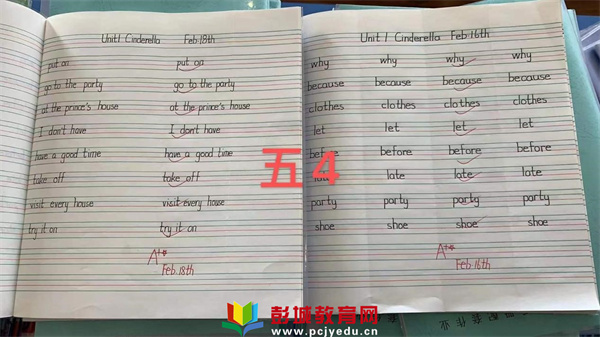 Unit1 Cinderella Feb.18th
put on put on
go to the party go to the party
at the prince's house at the prince's house
I don't have I don't have
have a good time have a good time
take off take off
visit every house visit every house
try it on try it on
A+*
Feb.18th
Unit 1 Cinderella Feb.16th
why why why why
because because because because
clothes clothes clothes clothes
let let let let
before before before before
late late late late
party party party party
shoe shoe shoe shoe
A+*
Feb.16th
五4
彭城教育网
www.pcjyedu.cn